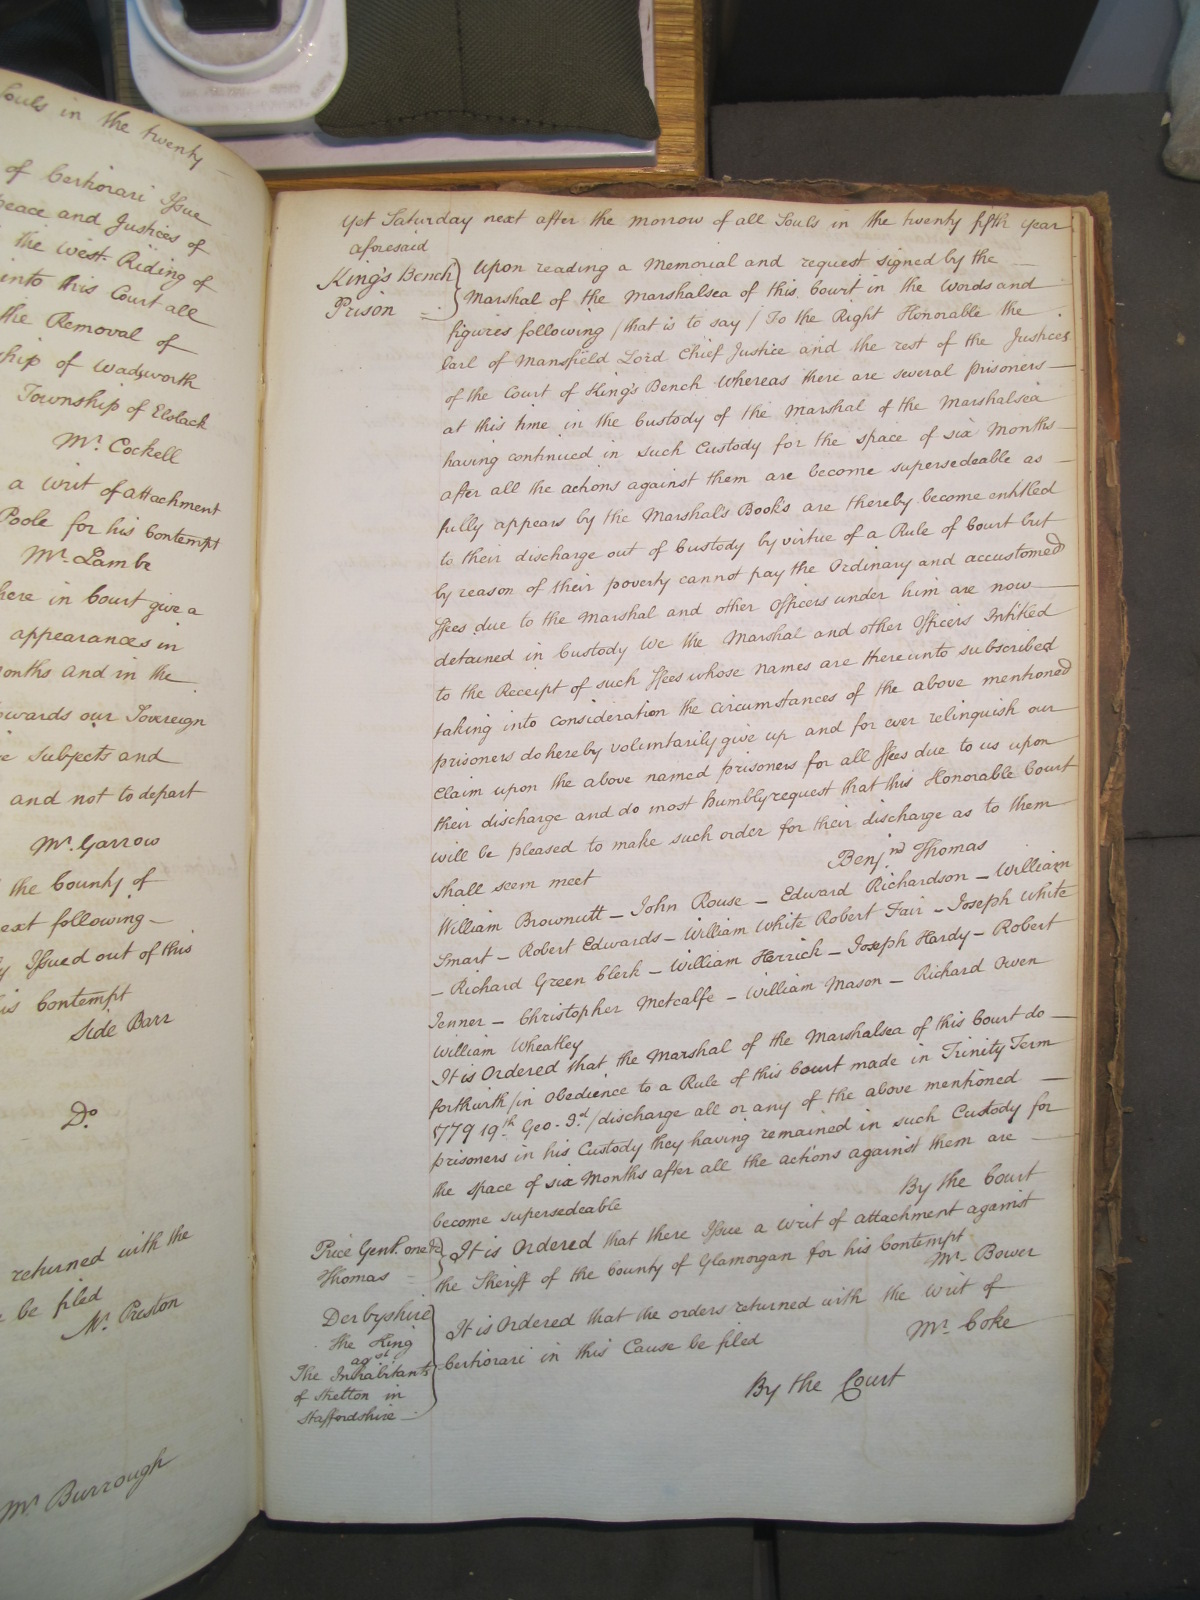 Souls in the twenty
of Certiorari Issue
peace and Justices of
the West Riding of
into this Court all
the Removal of
ship of Wadsworth
Township of Elslack
Mr. Cockell
a Writ of attachment
Poole for his Contempt
Mr. Lamb
here in Court give a
appearances in
Months and in the
towards our Sovereign
subjects and
and not to depart
Mr. Garrow
the County of
next following
Issued out of this
his Contempt
Side Barr
Do.
returned with the
be filed
Mr. Preston
Mr. Burrough
Yet Saturday next after the morrow of all Souls in the twenty fifth year
aforesaid
King's Bench
Prison
Upon reading a Memorial and request signed by the
Marshal of the Marshalsea of this Court in the Words and
figures following / that is to say / To the Right Honorable the
Earl of Mansfield Lord Chief Justice and the rest of the Justices
of the Court of King's Bench Whereas there are several prisoners
at this time in the Custody of the Marshal of the Marshalsea
having continued in such Custody for the space of six Months
after all the actions against them are become supersedeable as
fully appears by the Marshal's Books are thereby become entitled
to their discharge out of Custody by virtue of a Rule of Court but
by reason of their poverty cannot pay the Ordinary and accustomed
ffees due to the Marshal and other Officers under him are now
detained in Custody We the Marshal and other Officers Intitled
to the Receipt of such ffees whose names are thereunto subscribed
taking into consideration the circumstances of the above mentioned
prisoners do hereby voluntarily give up and for ever relinquish our
Claim upon the above named prisoners for all ffees due to us upon
their discharge and do most humbly request that this Honorable Court
will be pleased to make such order for their discharge as to them
shall seem meet
Benjn. Thomas
William Brownutt – John Rouse – Edward Richardson – William
Smart – Robert Edwards – William White Robert Fair – Joseph White
– Richard Green Clerk – William Herrick – Joseph Hardy – Robert
Jenner – Christopher Metcalfe – William Mason – Richard Owen
William Wheatley
It is Ordered that the Marshal of the Marshalsea of this Court do
forthwith / in obedience to a Rule of this Court made in Trinity Term
1779 19th. Geo. 3d. / discharge all or any of the above mentioned
prisoners in his Custody they having remained in such Custody for
the space of six Months after all the actions against them are
become supersedeable
By the Court
Price Gent. one &c
Thomas
It is Ordered that there Issue a Writ of attachment against
the Sheriff of the County of Glamorgan for his Contempt
Mr. Bower
Derbyshire
The King
agst.
The Inhabitants
of Shelton in
Staffordshire
It is Ordered that the orders returned with the Writ of
Certiorari in this Cause be filed
Mr. Coke
By the Court